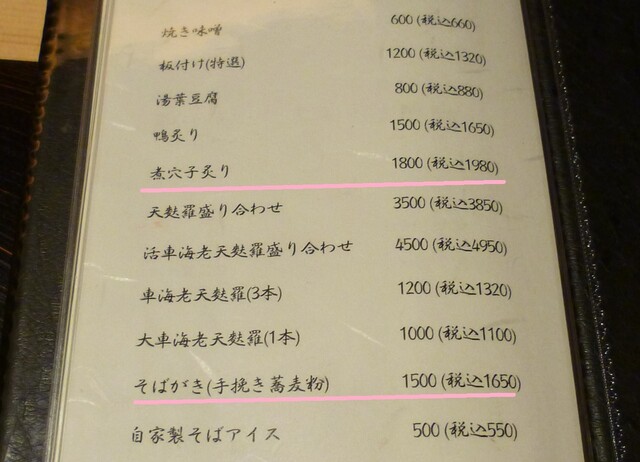 焼き味噌 600(税込660)
板付け(特選) 1200(税込1320)
湯葉豆腐 800(税込880)
鴨炙り 1500(税込1650)
煮穴子炙り 1800(税込1980)
天麩羅盛り合わせ 3500(税込3850)
活車海老天麩羅盛り合わせ 4500(税込4950)
車海老天麩羅(3本) 1200(税込1320)
大車海老天麩羅(1本) 1000(税込1100)
そばがき(手挽き蕎麦粉) 1500(税込1650)
自家製そばアイス 500(税込550)